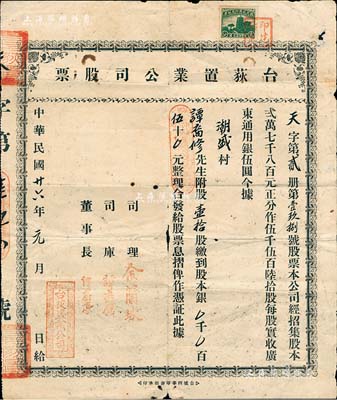 台荻置業公司股票
天字第貳册第壹玖捌號股票本公司經招集股本
弍萬七千八百元正分作伍千伍百陸拾股每股實收廣
東通用銀伍圓今據
潮盛村
譚喬修先生附股壹拾股繳到股本銀〇千〇百
伍十〇元整現合發給股票息摺俾作憑証此據
司理
司庫
董事長
中華民國廿六年元月 日給
字第
號